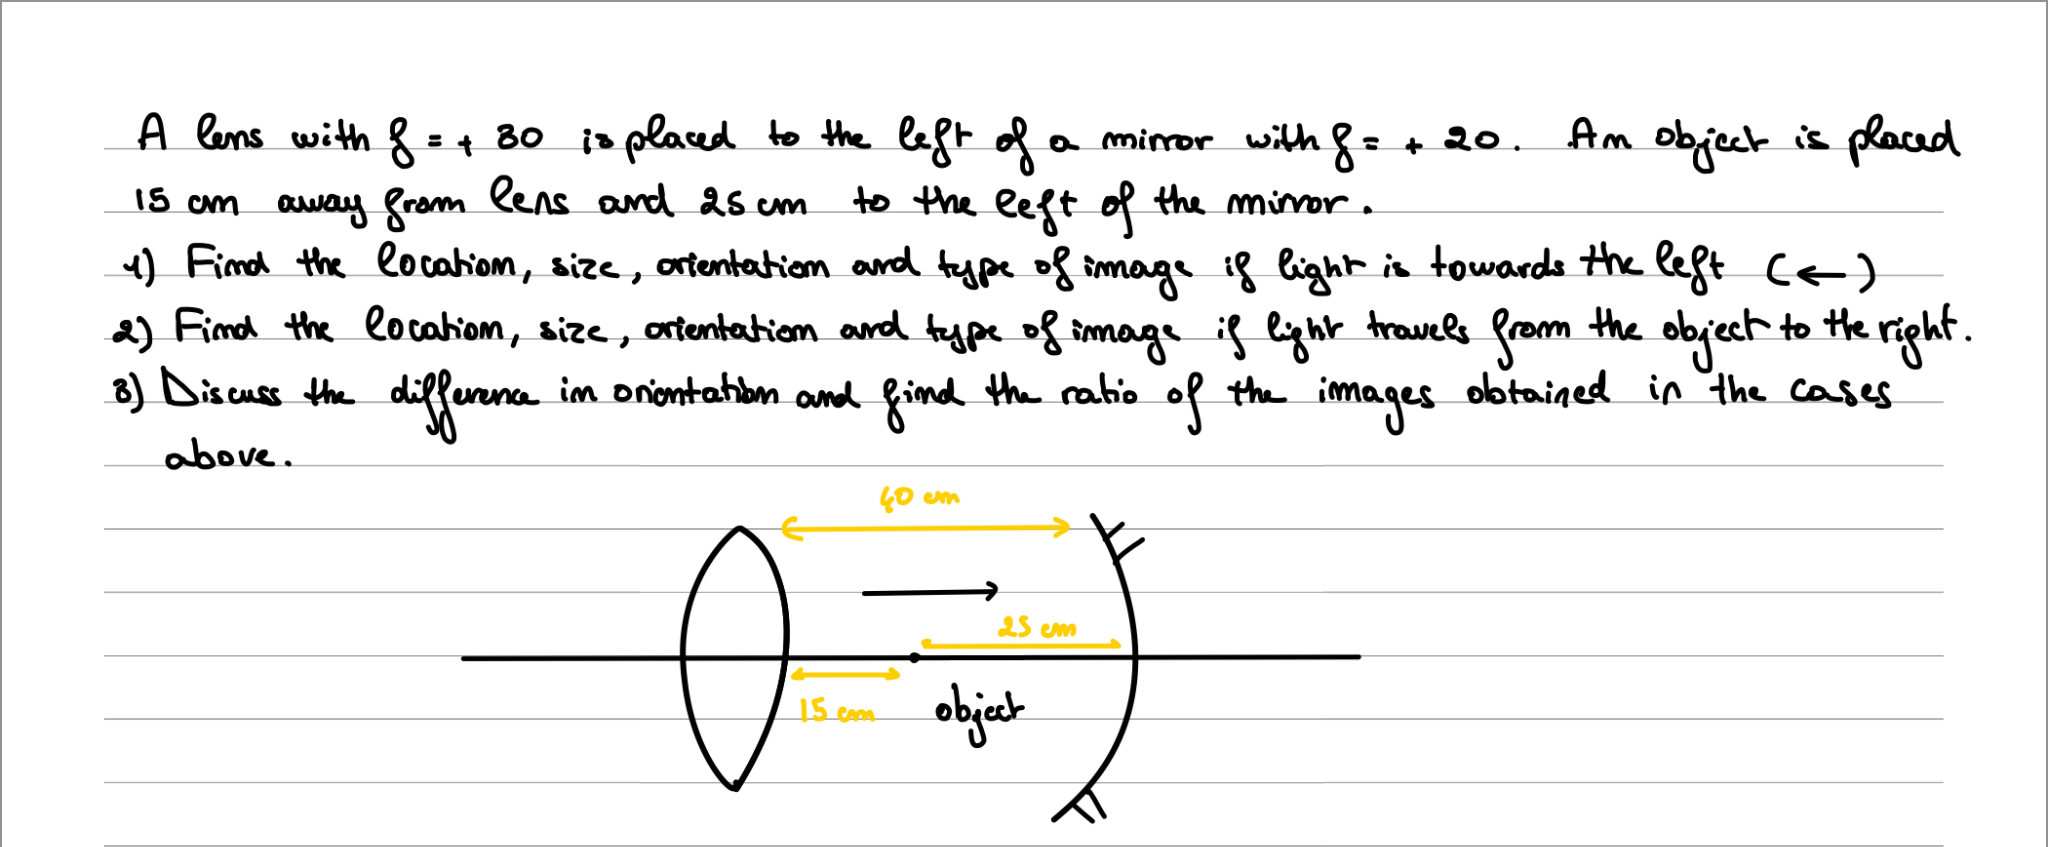 A lens with f = + 30 is placed to the left of a mirror with f = + 20. An object is placed
15 cm away from lens and 25 cm to the left of the mirror.
1) Find the location, size, orientation and type of image if light is towards the left (←)
2) Find the location, size, orientation and type of image if light travels from the object to the right.
3) Discuss the difference in orientation and find the ratio of the images obtained in the cases
above.
40 cm
25 cm
15 cm
object